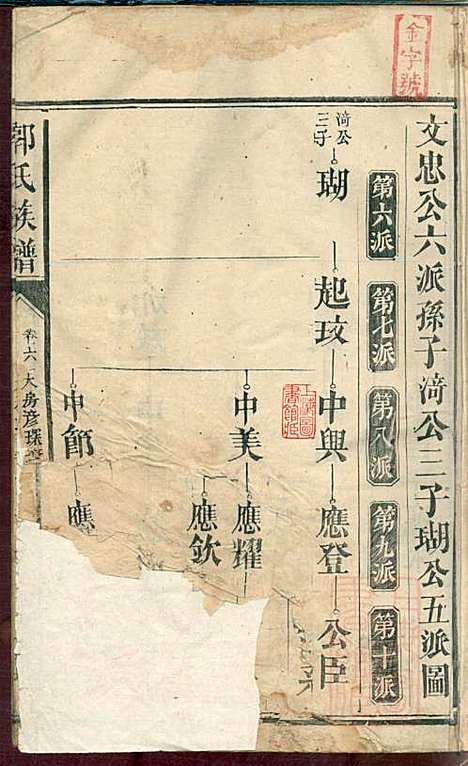 金字號
文忠公六派孫子渏公三子瑚公五派圖
第六派
第七派
第八派
第九派
第十派
渏公
三子
瑚
起玟
中興
應登
公臣
中美
應耀
應欽
中節
應
郭氏族譜
卷六
大房彦琛